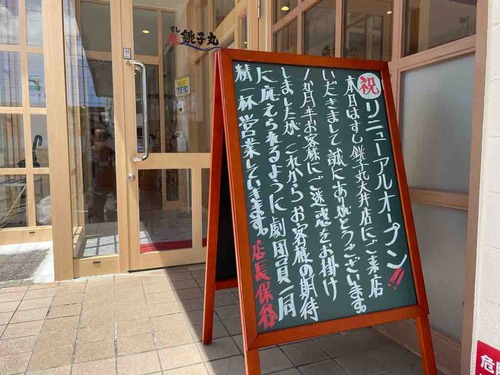 すし銚子丸
祝リニューアルオープン!!
本日はすし銚子丸大井店にご来店
いただきまして誠にありがとうございます。
1か月半お客様にご迷惑をお掛け
しましたが、これからお客様の期待
に応えられるように劇団員一同
精一杯営業していきます。店長保谷
危